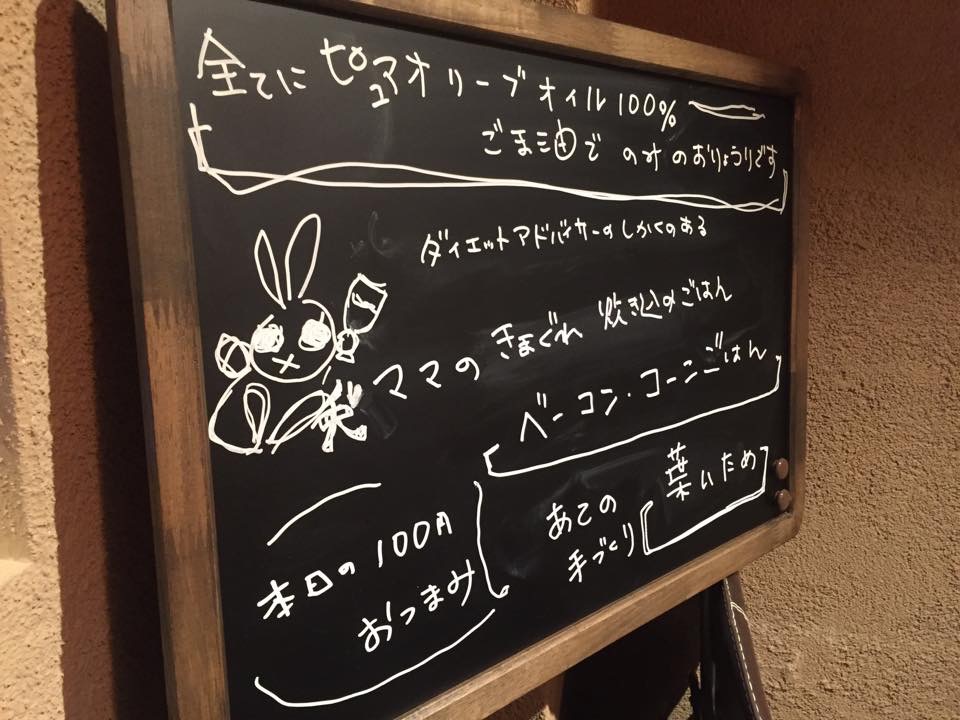 全てにピュアオリーブオイル100%
ごま油でのみのおりょうりです
ダイエットアドバイサーのしかくのある
ママのきまぐれ炊き込めごはん
ベーコン・コーンごはん
あての
手づくり
葉いため
本日の100円
おつまみ